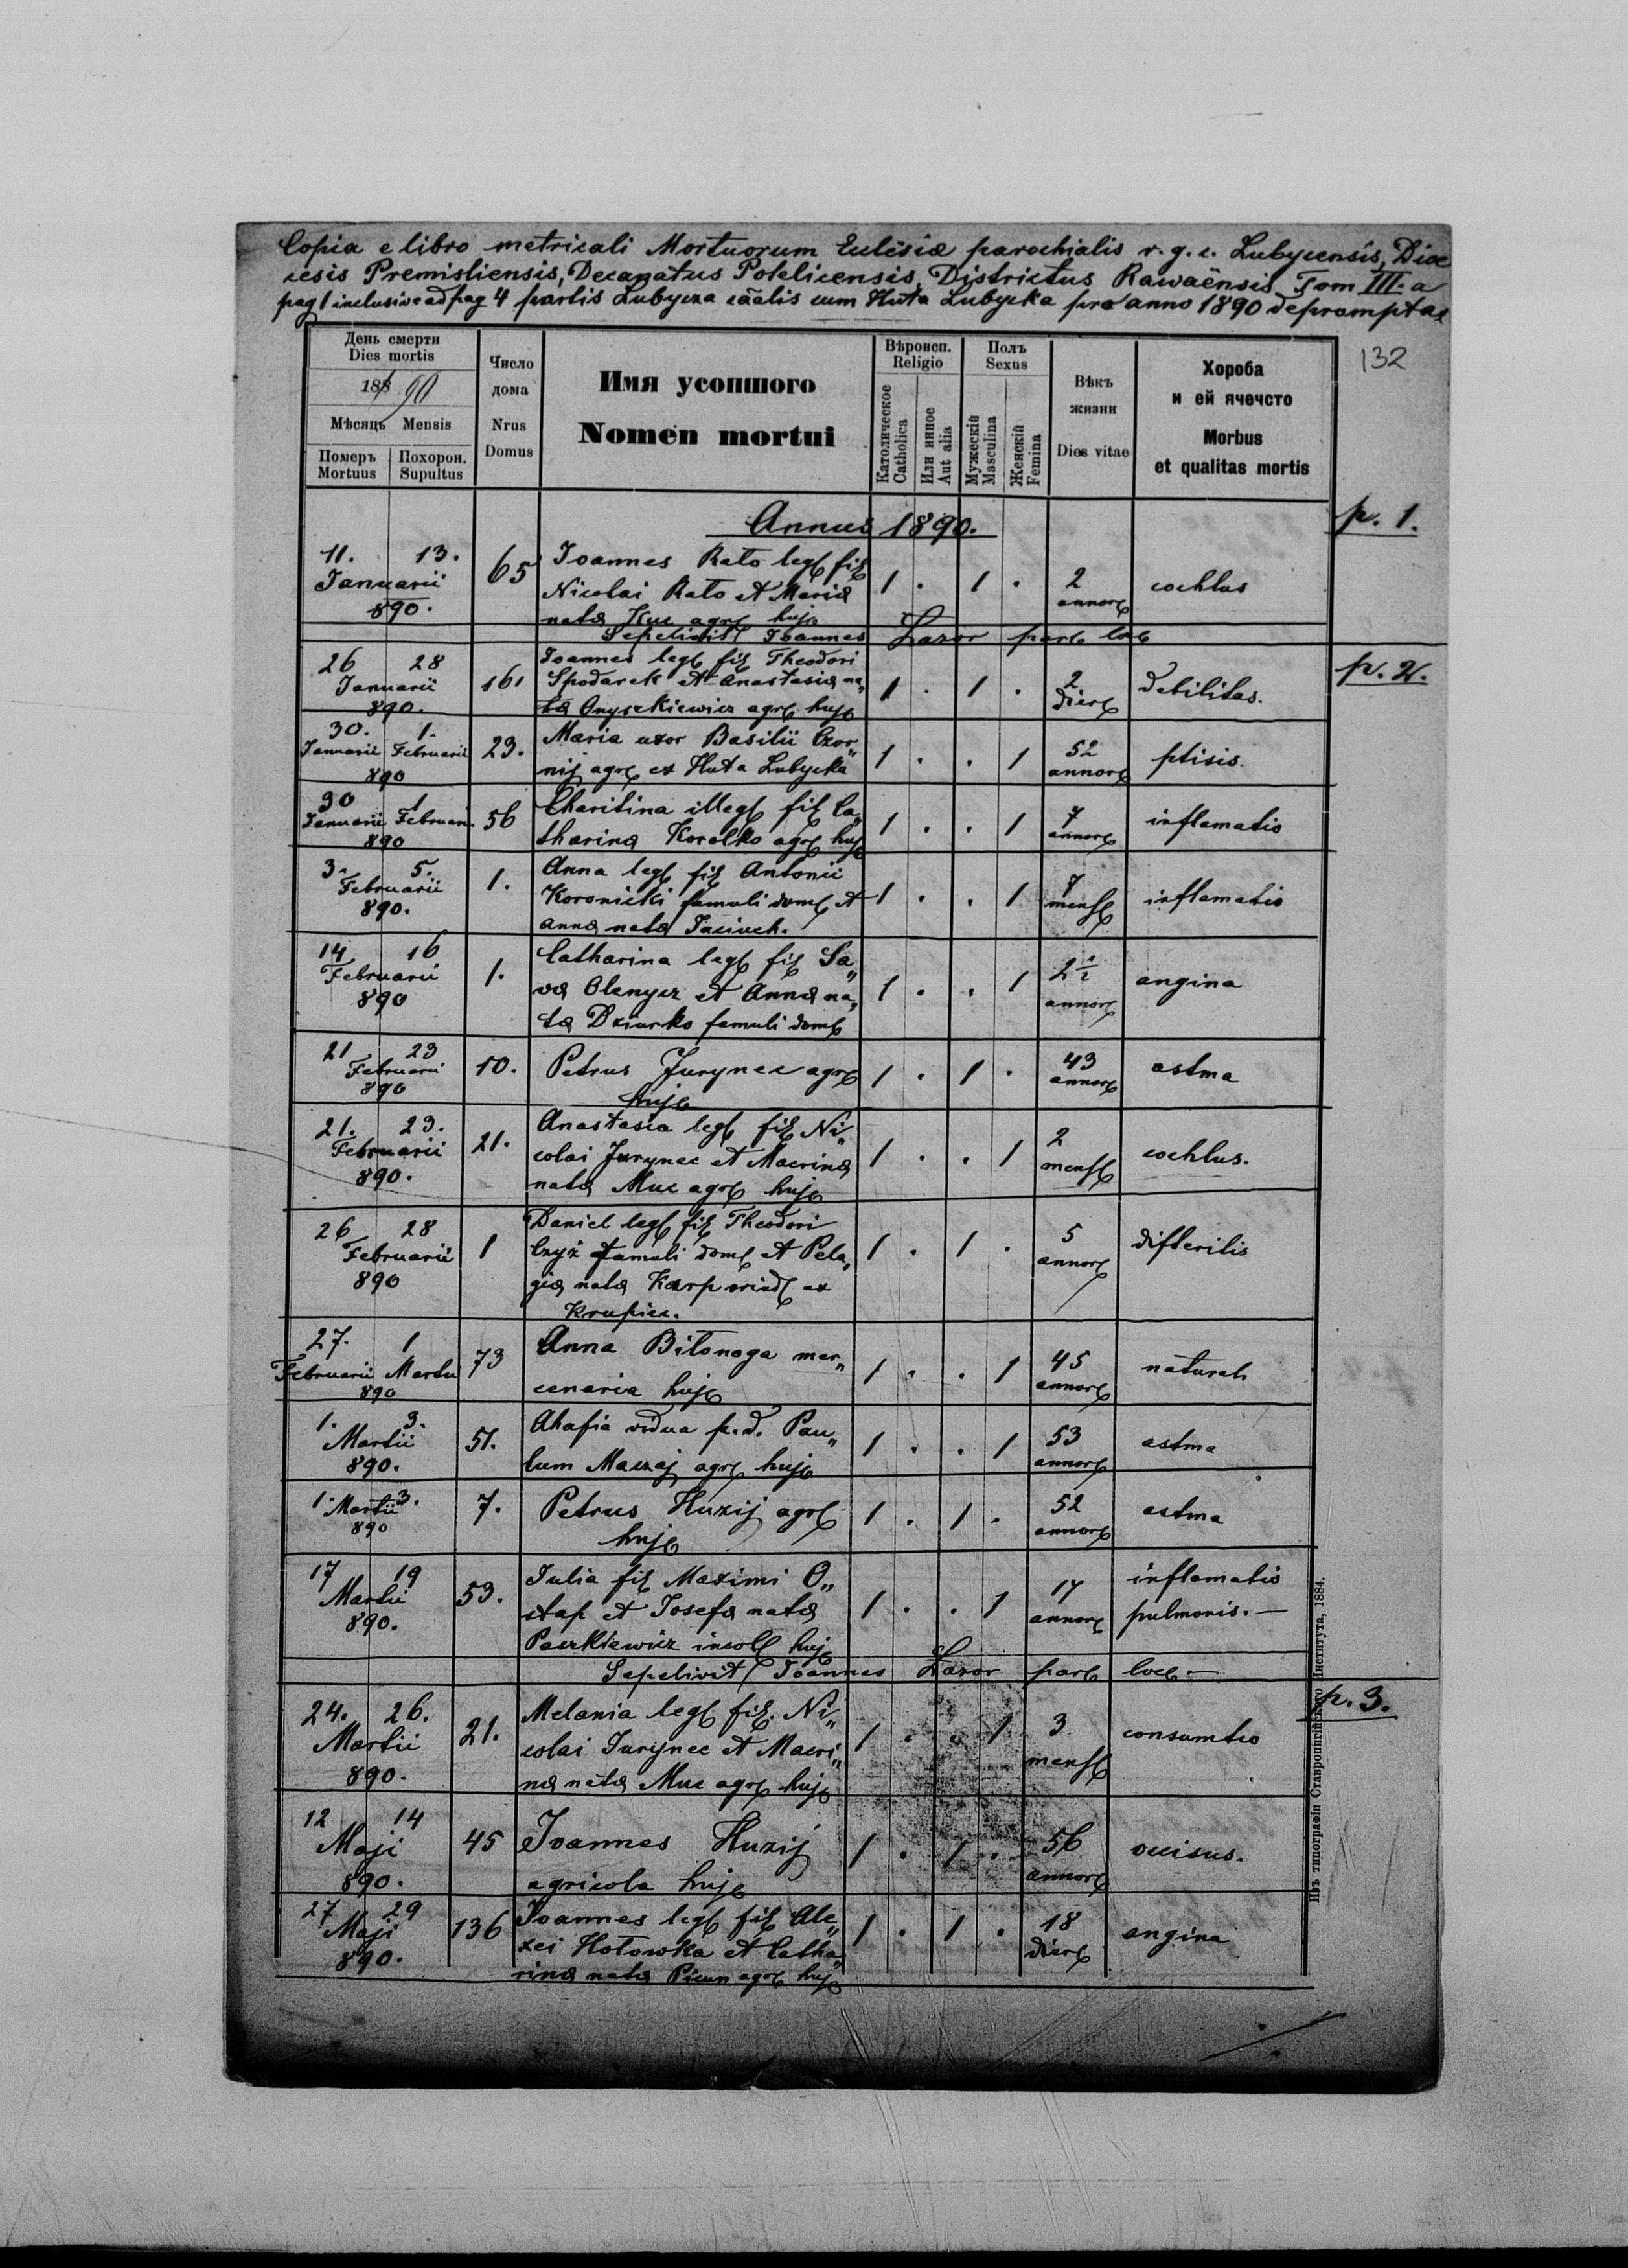 Copia e libro metricali Mortuorum Eclesiæ parochialis r. g. c. Lubycensis, Dioe
cesis Premisliensis, Decanatus Potelicensis, Districtus Rawaënsis Tom III. a
pag 1 inclusive ad pag 4 partis Lubycza cãalis cum Huta Lubycka pro anno 1890 depromptae
132
День смерти
Dies mortis
188 90
Мѣсяць Mensis
Померъ Похорон.
Mortuus Supultus
Число
дома
Nrus
Domus
Имя усопшого
Nomen mortui
Вѣроисп.
Religio
Католическое
Catholica
Или инное
Aut alia
Полъ
Sexus
Мужескій
Masculina
Женскій
Femina
Вѣкъ
жизни
Dies vitae
Хороба
и ей ячечсто
Morbus
et qualitas mortis
Annus 1890. p. 1.
11. 13.
Januarii
890.
65
Joannes Rato legl fil
Nicolai Rato et Mariæ
natæ Kuc agrc hujc
1 . 1 .
2
annorc
cochlus
Sepelivit Joannes Lazor parc locc
p. 2.
26 28
Januarii
890.
161
Joannes legl fil Theodori
Spodarek et Anastasiæ na„
tæ Onyszkiewicz agrc hujc
1 . 1 .
2
dierc
debilitas.
30. 1.
Januarii Februarii
890
23.
Maria uxor Basilii Czor„
nij agrc ex Huta Lubycka
1 . . 1
52
annorc
ptisis.
30 1
Januarii Februarii
890
56
Charitina illegl fil Ca„
tharinæ Korolko agrc hujc
1 . . 1
7
annorc
inflamatio
3. 5.
Februarii
890.
1.
Anna legl fil Antonii
Koronicki famuli domc et
Annæ natæ Jaciuch.
1 . . 1
7
mensc
inflamatio
14 16
Februarii
890
1.
Catharina legl fil Sa„
væ Olenycz et Annæ na„
tæ Dziurko famuli domc
1 . . 1
2 1/2
annorc
angina
21 23
Februarii
890
10.
Petrus Jurynec agrc
hujc
1 . 1 .
43
annorc
astma
21. 23.
Februarii
890.
21.
Anastasia legl fil Ni„
colai Jurynec et Macrinæ
natæ Muc agrc hujc
1 . . 1
2
mensc
cochlus.
26 28
Februarii
890
1
Daniel legl fil Theodori
Czyż famuli domc et Pela„
giæ natæ Karp orindc ex
Krupiec.
1 . 1 .
5
annorc
difteritis
27. 1
Februarii Martii
890
73
Anna Bitonoga mer„
cenaria hujc
1 . . 1
45
annorc
naturalc
1. 3.
Martii
890.
51.
Ahafia vidua p. d. Pau„
lum Maczaj agrc hujc
1 . . 1
53
annorc
astma
1. 3.
Martii
890
7.
Petrus Huzij agrc
hujc
1 . 1 .
52
annorc
astma
17 19
Martii
890.
53.
Julia fil Maximi O„
stap et Josefæ natæ
Paszkiewicz incolc hujc
1 . . 1
17
annorc
inflamatio
pulmonis. —
Sepelivit Joannes Lazor parc locc —
p. 3.
24. 26.
Martii
890.
21.
Melania legl fil. Ni„
colai Jurynec et Macri„
næ natæ Muc agrc hujc
1 . . 1
3
mensc
consumtio
12 14
Maji
890.
45
Joannes Huzij
agricola hujc
1 . 1 .
56
annorc
occisus.
27 29
Maji
890.
136
Joannes legl fil Ale„
xei Hotowka et Catha„
rinæ natæ Picun agrc hujc
1 . 1 .
18
dierc
angina
Изъ типографіи Ставропигійского Института, 1884.